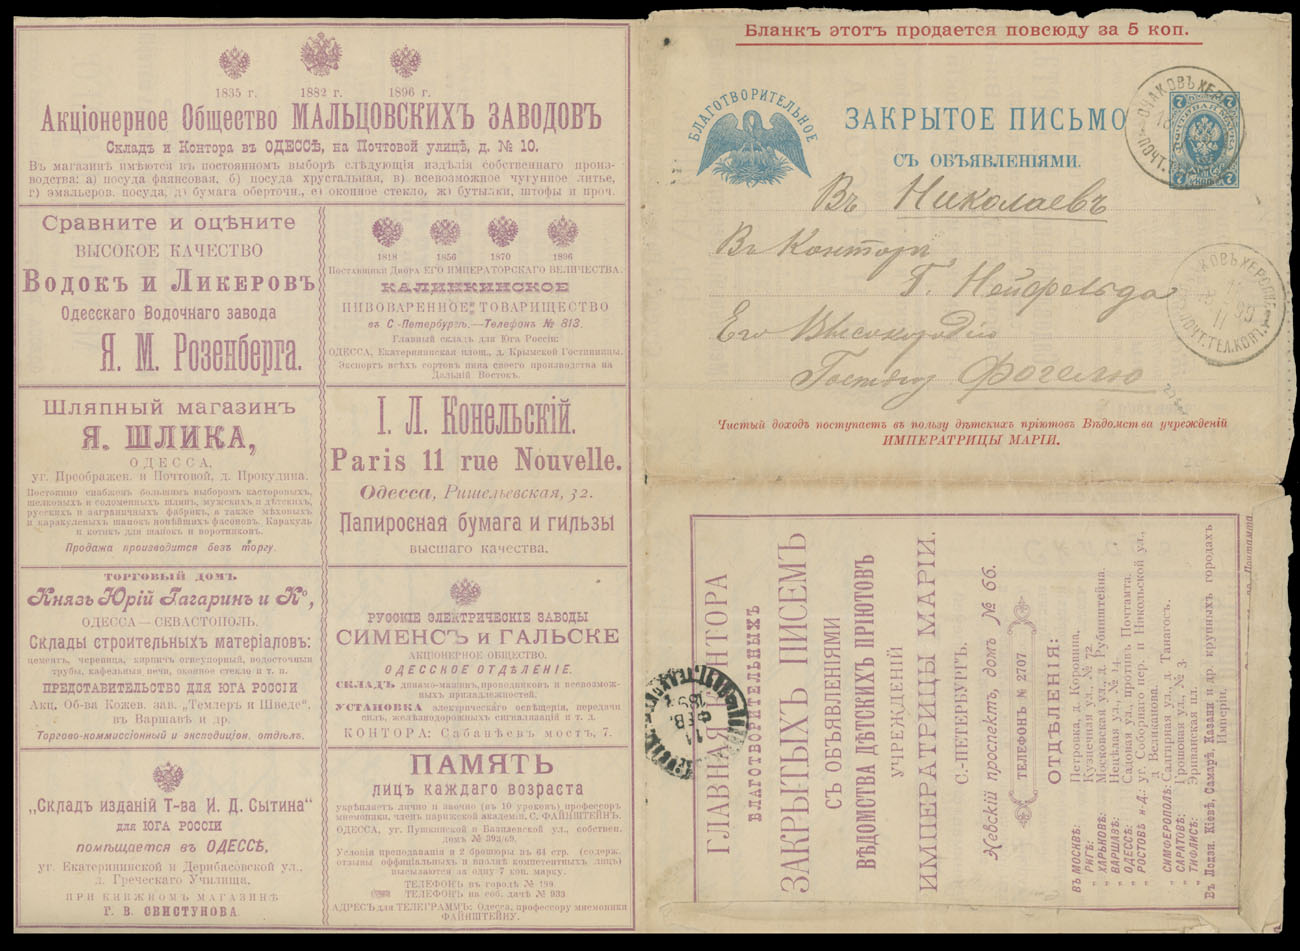 1835 г. 1882 г. 1896 г.
Акціонерное Общество МАЛЬЦОВСКИХЪ ЗАВОДОВЪ
Складъ и Контора въ ОДЕССѢ, на Почтовой улицѣ, д. № 10.
Въ магазинѣ имѣются въ постоянномъ выборѣ слѣдующія издѣлія собственнаго произ-
водства: а) посуда фаянсовая, б) посуда хрустальная, в) всевозможное чугунное литье,
г) эмальеров. посуда, д) бумага оберточн., е) оконное стекло, ж) бутылки, штофы и проч.
Сравните и оцѣните
ВЫСОКОЕ КАЧЕСТВО
Водокъ и Ликеровъ
Одесскаго Водочнаго завода
Я. М. Розенберга.
1818 1856 1870 1896
Поставщики Двора ЕГО ИМПЕРАТОРСКАГО ВЕЛИЧЕСТВА.
КАЛИНКИНСКОЕ
ПИВОВАРЕННОЕ ТОВАРИЩЕСТВО
въ С-Петербургѣ.—Телефонъ № 813.
Главный складъ для Юга Россіи:
ОДЕССА, Екатерининская площ., д. Крымской Гостинницы.
Экспортъ всѣхъ сортовъ пива своего производства на
Дальній Востокъ.
Шляпный магазинъ
Я. ШЛИКА,
ОДЕССА,
уг. Преображен. и Почтовой, д. Прокудина.
Постоянно снабженъ большимъ выборомъ касторовыхъ,
шелковыхъ и соломенныхъ шляпъ, мужскихъ и дѣтскихъ,
русскихъ и заграничныхъ фабрикъ, а также мѣховыхъ
и каракулевыхъ шапокъ новѣйшихъ фасоновъ. Каракуль
и котикъ для шапокъ и воротниковъ.
Продажа производится безъ торгу.
І. Л. Конельскій.
Paris 11 rue Nouvelle.
Одесса, Ришельевская, 32.
Папиросная бумага и гильзы
высшаго качества.
ТОРГОВЫЙ ДОМЪ
Князь Юрій Гагаринъ и Ко,
ОДЕССА—СЕВАСТОПОЛЬ.
Склады строительныхъ матеріаловъ:
цементъ, черепица, кирпичъ огнеупорный, водосточныя
трубы, кафельныя печи, оконное стекло и т. п.
ПРЕДСТАВИТЕЛЬСТВО ДЛЯ ЮГА РОССІИ
Акц. Об-ва Кожев. зав. „Темлеръ и Шведе",
въ Варшавѣ и др.
Торгово-коммиссіонный и экспедиціон. отдѣлъ.
РУССКІЕ ЭЛЕКТРИЧЕСКІЕ ЗАВОДЫ
СИМЕНСЪ и ГАЛЬСКЕ
АКЦІОНЕРНОЕ ОБЩЕСТВО.
ОДЕССКОЕ ОТДѢЛЕНІЕ.
СКЛАДЪ динамо-машинъ, проводниковъ и всевозмож-
ныхъ принадлежностей.
УСТАНОВКА электрическаго освѣщенія, передачи
силъ, желѣзнодорожныхъ сигнализацій и т. д.
КОНТОРА: Сабанѣевъ мостъ, 7.
„Складъ изданій Т-ва И. Д. Сытина"
для ЮГА РОССІИ
помѣщается въ ОДЕССѢ,
уг. Екатерининской и Дерибасовской ул.,
д. Греческаго Училища,
ПРИ КНИЖНОМЪ МАГАЗИНѢ
Г. В. СВИСТУНОВА.
ПАМЯТЬ
лицъ каждаго возраста
укрѣпляетъ лично и заочно (въ 10 уроковъ) профессоръ
мнемоники, членъ парижской академіи, С. ФАЙНШТЕЙНЪ.
ОДЕССА, уг. Пушкинской и Базилевской ул., собствен.
домъ
Условія преподаванія и 2 брошюры въ 64 стр. (содерж.
отзывы оффиціальныхъ и вполнѣ компетентныхъ лицъ)
высылаются за одну 7 коп. марку.
ТЕЛЕФОНЪ въ городѣ № 199.
ТЕЛЕФОНЪ на соб. дачѣ № 939.
АДРЕСЪ для ТЕЛЕГРАММЪ: Одесса, профессору мнемоники
ФАЙНШТЕЙНУ.
Бланкъ этотъ продается повсюду за 5 коп.
БЛАГОТВОРИТЕЛЬНОЕ
ЗАКРЫТОЕ ПИСЬМО
СЪ ОБЪЯВЛЕНІЯМИ.
ОЧАКОВЪ ХЕР
7 7
7 7
Въ Николаевъ
Въ Контору
Г. Нейфельда
Его Высокородію
Господину Фогелю
ОЧАКОВЪ ХЕРСОН.
11
99
ПОЧТ.ТЕЛ.КОНТ.
Чистый доходъ поступаетъ въ пользу дѣтскихъ пріютовъ Вѣдомства учрежденій
ИМПЕРАТРИЦЫ МАРІИ.
11
ФЕВ.
ГЛАВНАЯ КОНТОРА
БЛАГОТВОРИТЕЛЬНЫХЪ
ЗАКРЫТЫХЪ ПИСЕМЪ
СЪ ОБЪЯВЛЕНІЯМИ
ВѢДОМСТВА ДѢТСКИХЪ ПРІЮТОВЪ
УЧРЕЖДЕНІЙ
ИМПЕРАТРИЦЫ МАРІИ.
С.-ПЕТЕРБУРГЪ.
Невскій проспектъ, домъ № 66.
ТЕЛЕФОНЪ № 2707.
ОТДѢЛЕНІЯ:
ВЪ МОСКВѢ: Петровка, д. Коровина.
„ РИГѢ: Кузнечная ул., № 72.
„ ХАРЬКОВѢ: Московская ул., д. Рубинштейна.
„ ВАРШАВѢ: Нецѣлая ул., № 14.
„ ОДЕССѢ: Садовая ул., противъ Почтамта.
„ РОСТОВѢ н-Д.: уг. Соборнаго пер. и Никольской ул.,
д. Великанова.
„ СИМФЕРОПОЛѢ: Салгирная ул., д. Танагосъ.
„ САРАТОВѢ: Грошовая ул., № 3.
„ ТИФЛИСѢ: Эриванская пл.
Въ Лодзи, Кіевѣ, Самарѣ, Казани и др. крупныхъ городахъ
Имперіи.